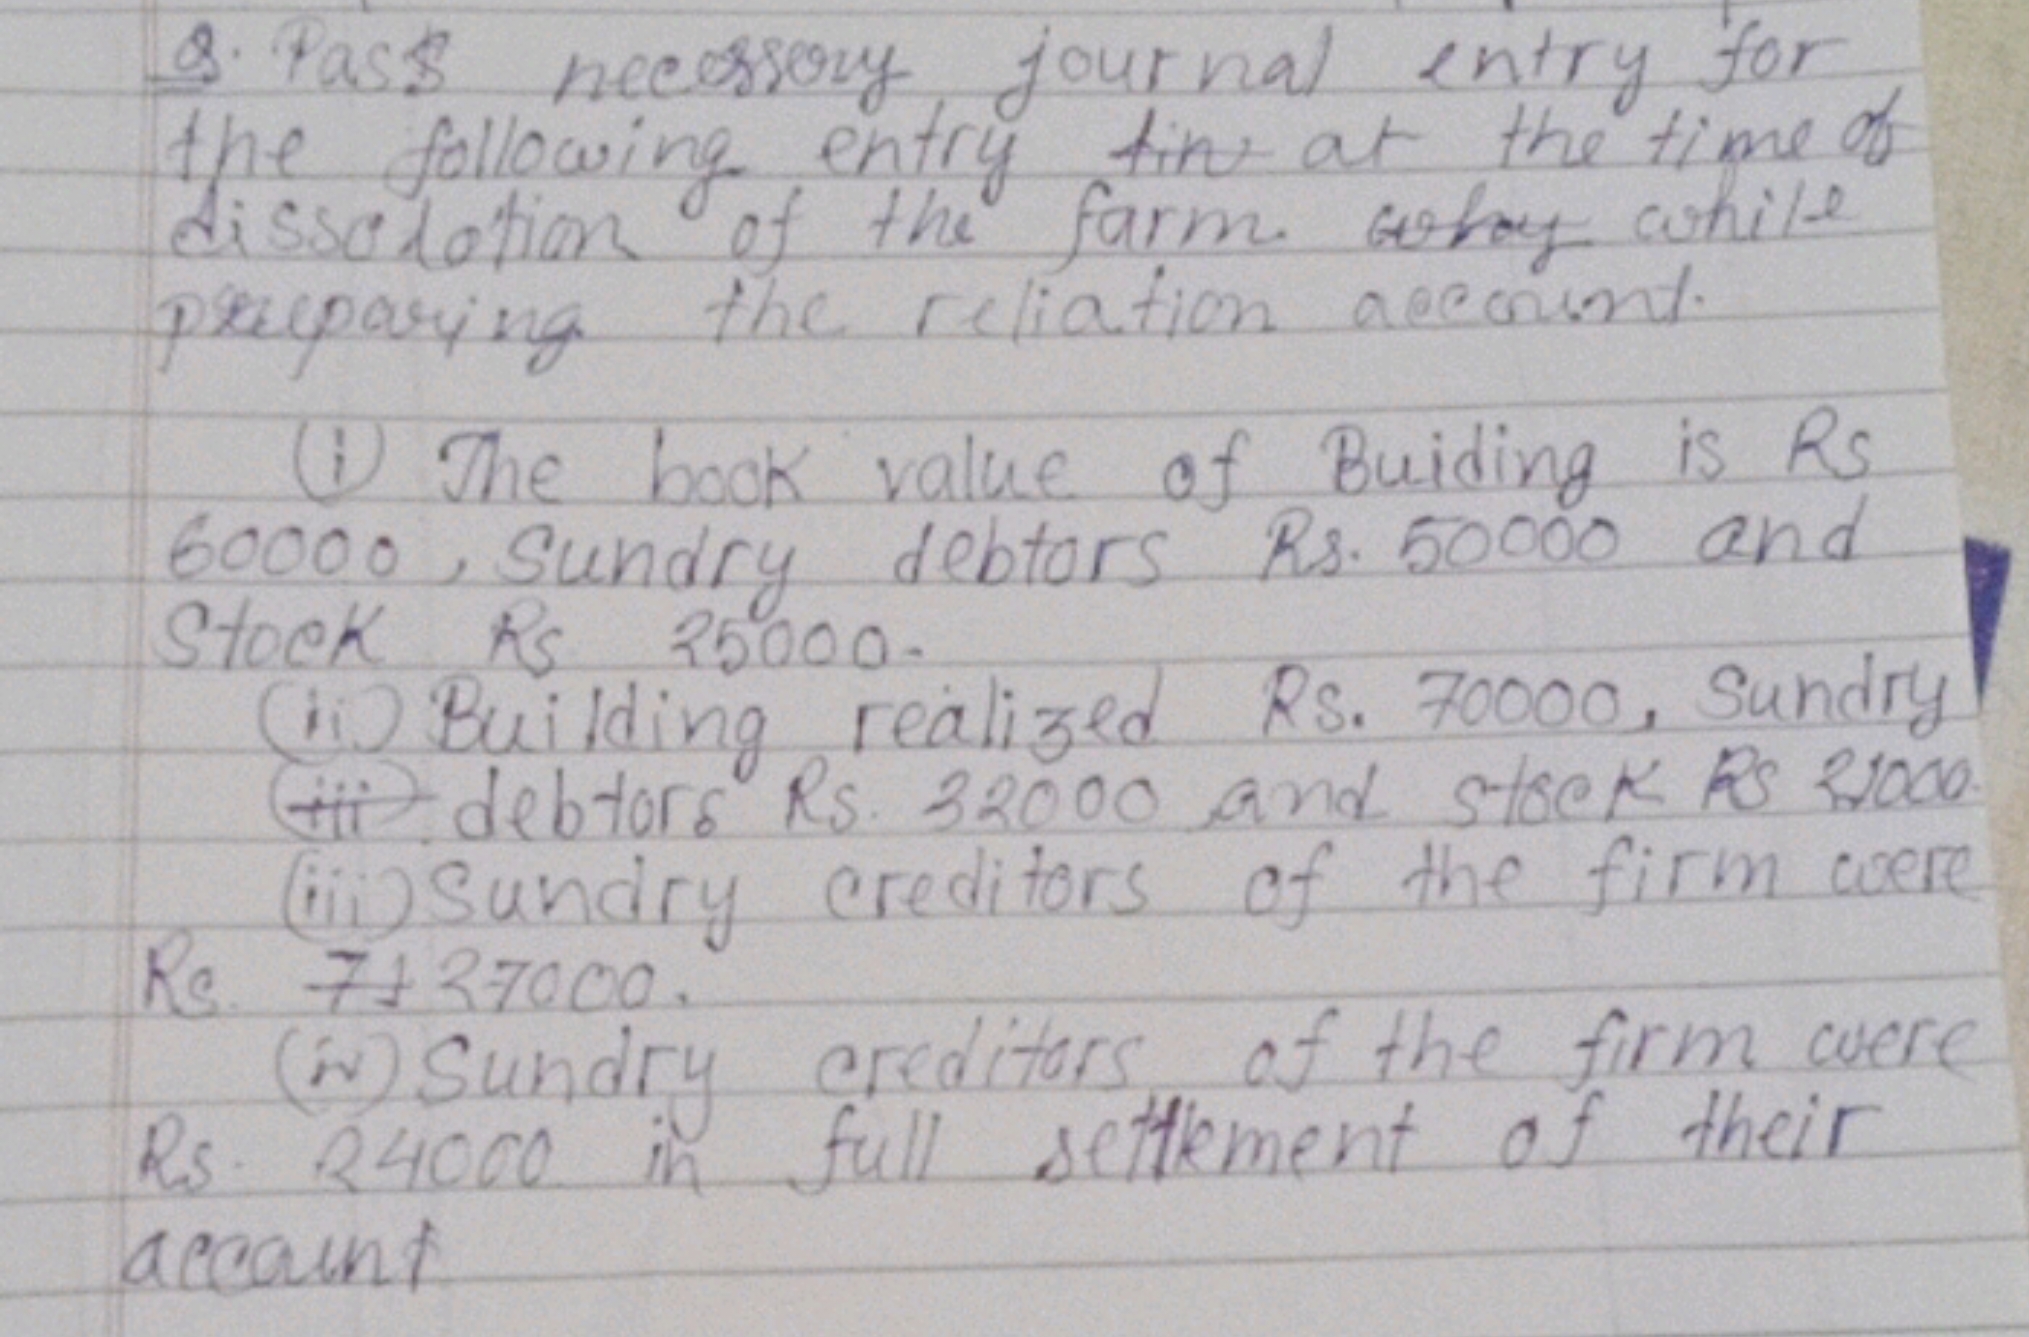 Q. Pass necessery journal entry for
the following entry tin at the time of
dissolotion of the farm. why while
preparing the reliation account.
(i) The book value of Buiding is Rs
60000, Sundry debtors Rs. 50000 and
Stock Rs 25000.
(ii) Building realized Rs. 70000, Sundry
(iii) debtors Rs. 32000 and stock Rs 21000.
(iii) Sundry creditors of the firm were
Rs. 71 27000.
(iv) Sundry creditors of the firm were
Rs. 24000 in full settlement of their
account